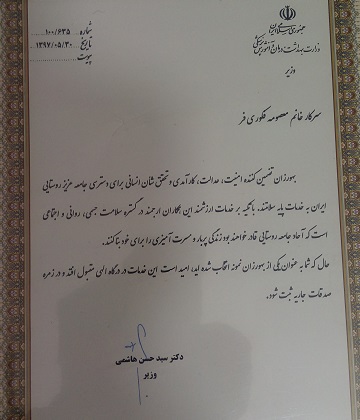 جمهوری اسلامی ایران
وزارت بهداشت، درمان و آموزش پزشکی
وزیر
شماره ۱۰۰/۶۳۵
تاریخ ۱۳۹۷/۰۵/۳۰
پیوست
سرکار خانم معصومه فکوری فر
بهورزان تضمین کننده امنیت، عدالت، کارآمدی و تحقق شان انسانی برای دسترسی جامعه عزیز روستایی
ایران به خدمات پایه سلامتند. با تکیه بر خدمات ارزشمند این همکاران ارجمند در گستره سلامت جسمی، روانی و اجتماعی
است که آحاد جامعه روستایی قادر خواهند بود زندگی پربار و مسرت آمیزی را برای خود بنا کنند.
حال که شما به عنوان یکی از بهورزان نمونه انتخاب شده اید، امید است این خدمات در درگاه الهی مقبول افتد و در زمره
صدقات جاریه ثبت شود.
دکتر سید حسن هاشمی
وزیر